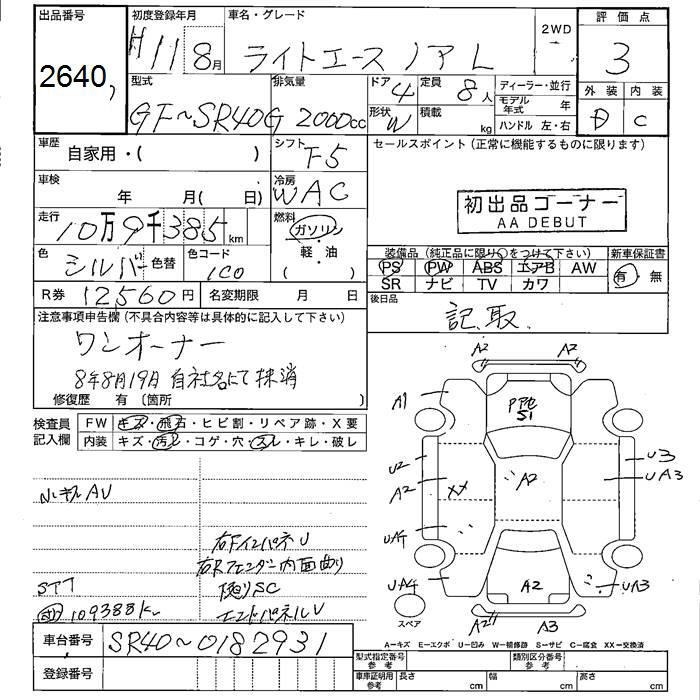 出品番号
2640,
初度登録年月
H11 8月
車名・グレード
ライトエース ノア L
2WD
評価点
3
型式
GF~SR40G
排気量
2000cc
ドア
4
形状
W
定員
8人
積載
kg
ディーラー・並行
モデル年式 年
ハンドル 左・右
外装
D
内装
C
車歴
自家用・( )
シフト
F5
セールスポイント(正常に機能するものに限ります)
車検
年 月( 日)
冷房
WAC
初出品コーナー
AA DEBUT
走行
10万9千385km
燃料
ガソリン
軽・油
色
シルバー
色替
色コード
1C0
装備品(純正品に限り○をつけて下さい)
PS PW ABS エアB AW
SR ナビ TV カワ
新車保証書
有 無
R券
12560円
名変期限 月 日
後日品
記、取
注意事項申告欄(不具合内容等は具体的に記入して下さい)
ワンオーナー
8年8月19日 自社名にて抹消
修復歴 有〔箇所 〕
検査員記入欄
FW キズ・飛石・ヒビ割・リペア跡・X要
内装 キズ・汚レ・コゲ・穴・スレ・キレ・破レ
A2 A2
A1
P飛
S1
U2
A2
XX
A2
U3
UA3
UA4
UA4
A2
UA3
A2
A3
スペア
右FインパネU
エンドパネルU
STT
109388K
車台番号
SR40~0182931
A-キズ E-エクボ U-凹み W-補修跡 S-サビ C-腐食 XX-交換済
登録番号
型式指定番号 参考
類別区分番号 参考
車庫証明用 参考
長さ cm
幅 cm
高さ cm